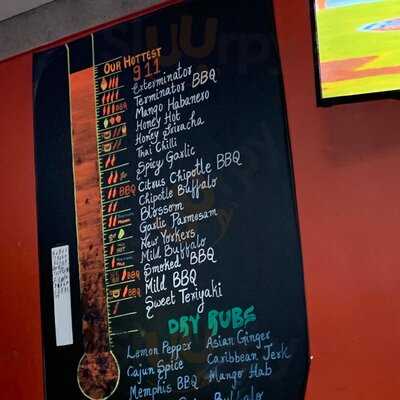 OUR HOTTEST
911
Exterminator
Terminator BBQ
Mango Habanero
Honey Hot
Honey Sriracha
Thai Chilli
Spicy Garlic
Citrus Chipotle BBQ
Chipotle Buffalo
Blossom
Garlic Parmesam
New Yorkers
Mild Buffalo
Smoked BBQ
Mild BBQ
Sweet Teriyaki
DRY RUBS
Lemon Pepper Asian Ginger
Cajun Spice Caribbean Jerk
Memphis BBQ Mango Hab
Buffalo